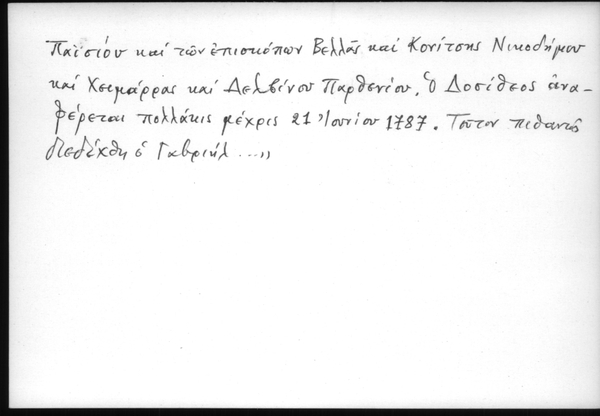 Παϊσίου καί τῶν ἐπισκόπων Βελλᾶς καί Κονίτσης Νικοδήμου
καί Χειμάρρας καί Δελβίνου Παρθενίου. Ὁ Δοσίθεος ἀνα-
φέρεται πολλάκις μέχρις 21 Ἰουνίου 1787. Τοῦτον πιθανῶς
διεδέχθη ὁ Γαβριήλ ...,,